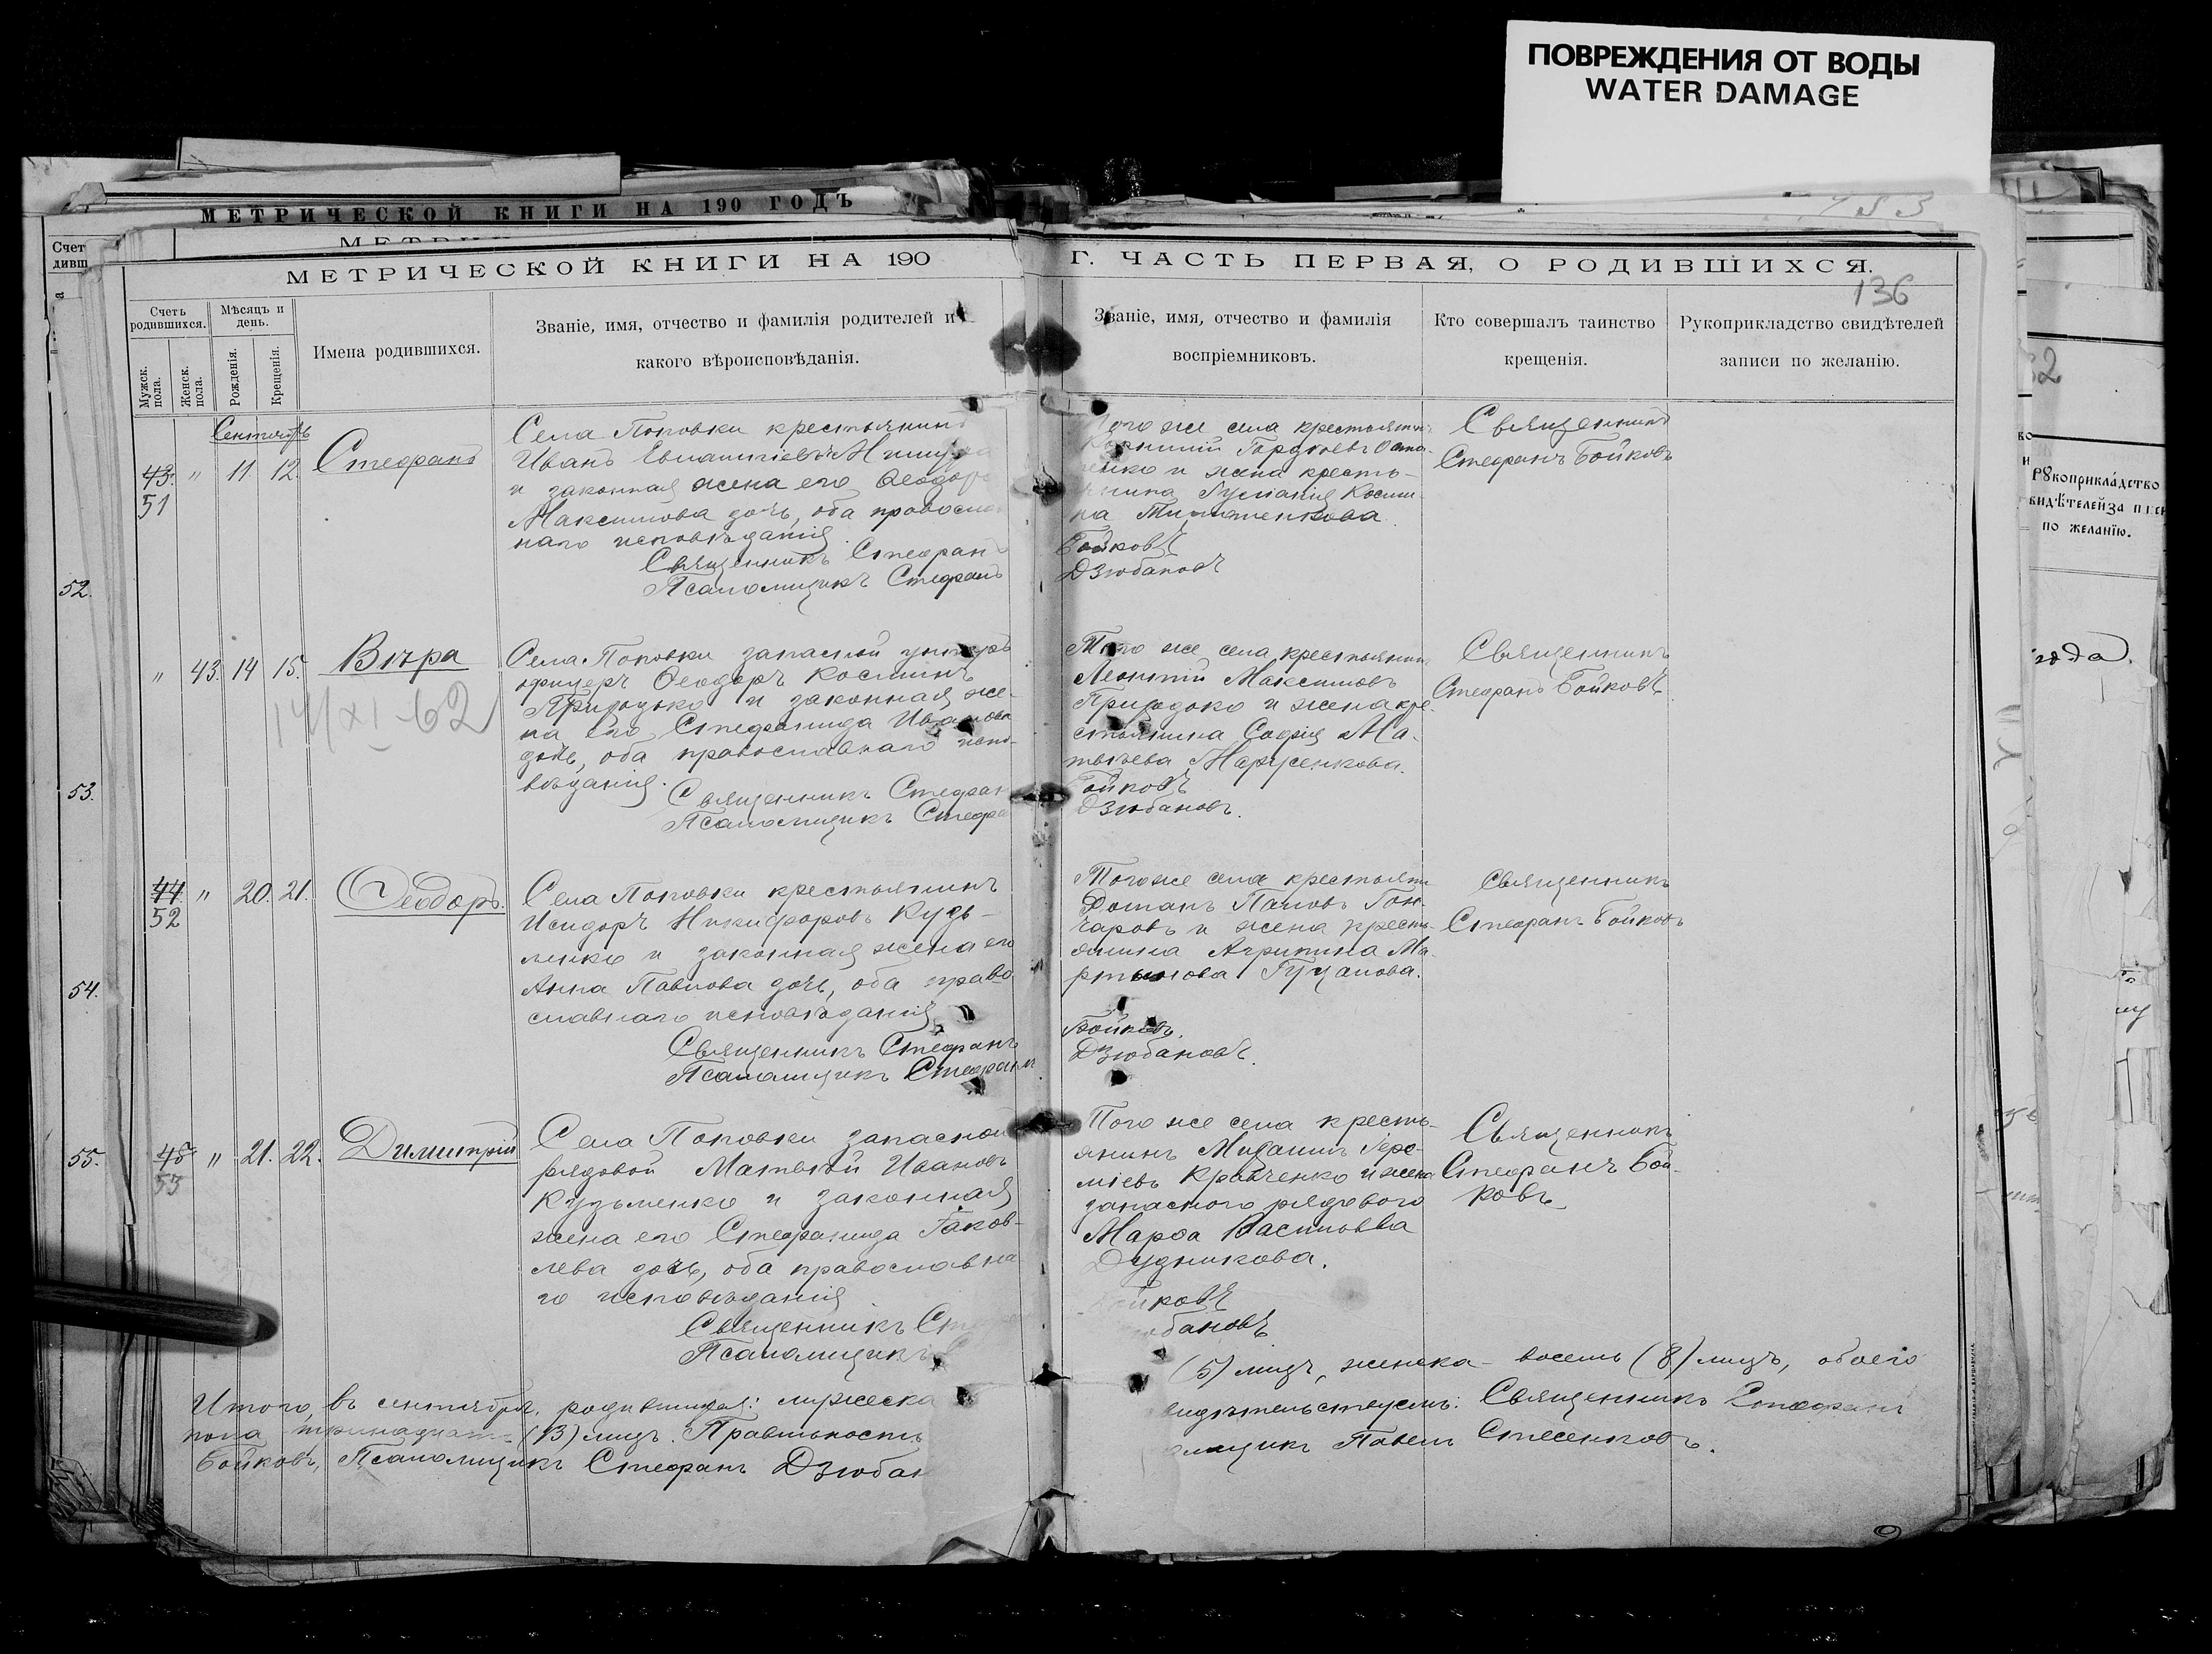 ПОВРЕЖДЕНИЯ ОТ ВОДЫ
WATER DAMAGE
МЕТРИЧЕСКОЙ КНИГИ НА 190 ГОДЪ
МЕТРИЧЕСКОЙ КНИГИ НА 190 Г. ЧАСТЬ ПЕРВАЯ, О РОДИВШИХСЯ.
136
Счетъ родившихся.
Мужск. пола.
Женск. пола.
Мѣсяцъ и день.
Рожденія.
Крещенія.
Имена родившихся.
Званіе, имя, отчество и фамилія родителей и
какого вѣроисповѣданія.
Званіе, имя, отчество и фамилія
воспріемниковъ.
Кто совершалъ таинство
крещенія.
Рукоприкладство свидѣтелей
записи по желанію.
Сентябрь
43. " 11 12. Стефанъ
51
Села Поповки крестьянинъ
Иванъ
и законная жена его Ѳеодора
Максимова дочь, оба православ
наго исповѣданія.
Священникъ Стефанъ
Псаломщикъ Стефанъ
Того же села крестьянинъ
и жена кресть-
янина
на
Бойковъ
Дзюбановъ
Священникъ
Стефанъ Бойковъ
" 43. 14 15. Вѣра
14/XI-62
Села Поповки запасной унтеръ
офицеръ Ѳеодоръ Косминъ
Приходько и законная же-
на его Стефанида Иванова
дочь, оба православнаго испо-
вѣданія.
Священникъ Стефан
Псаломщикъ Стефа
Того же села крестьянинъ
Леонтій Максимовъ
Приходько и жена кре-
стьянина Софія Ма-
твѣева Марченкова.
Бойковъ
Дзюбановъ.
Священникъ
Стефанъ Бойковъ
44. " 20. 21. Ѳеодоръ.
52
Села Поповки крестьянинъ
Исидоръ Никифоровъ Кузь-
менко и законная жена его
Анна Павлова дочь, оба право
славнаго исповѣданія
Священникъ Стефанъ
Псаломщикъ Стефанъ
Того же села крестьянин
Гон-
чаровъ и жена кресть-
янина Агрипина Ма-
ртынова
Бойковъ.
Дзюбановъ.
Священникъ
Стефанъ Бойковъ
45 " 21. 22. Димитрій
53
Села Поповки запасной
рядовой Матвѣй Ивановъ
Кузьменко и законная
жена его Стефанида Іаков-
лева дочь, оба православна
го исповѣданія
Священникъ Сте
Псаломщикъ
Того же села кресть-
янинъ Михаилъ Іере-
міевъ Кравченко и жена
запасного рядового
Марѳа Васильева
Дудникова.
ойковъ
юбановъ
Священникъ
Стефанъ Бой-
ковъ
Итого, въ сентябрѣ, родившихся: мужеска (5) лицъ, женска - восемь (8) лицъ, обоего
пола тринадцать (13) лицъ. Правильность видѣтельствуемъ: Священникъ Стефанъ
Бойковъ, Псаломщикъ Стефанъ Дзюбан омщикъ Павелъ Стесенковъ.
Счет
дивш
52.
53.
54.
55.
Рукоприкладство
по желанію.
года.